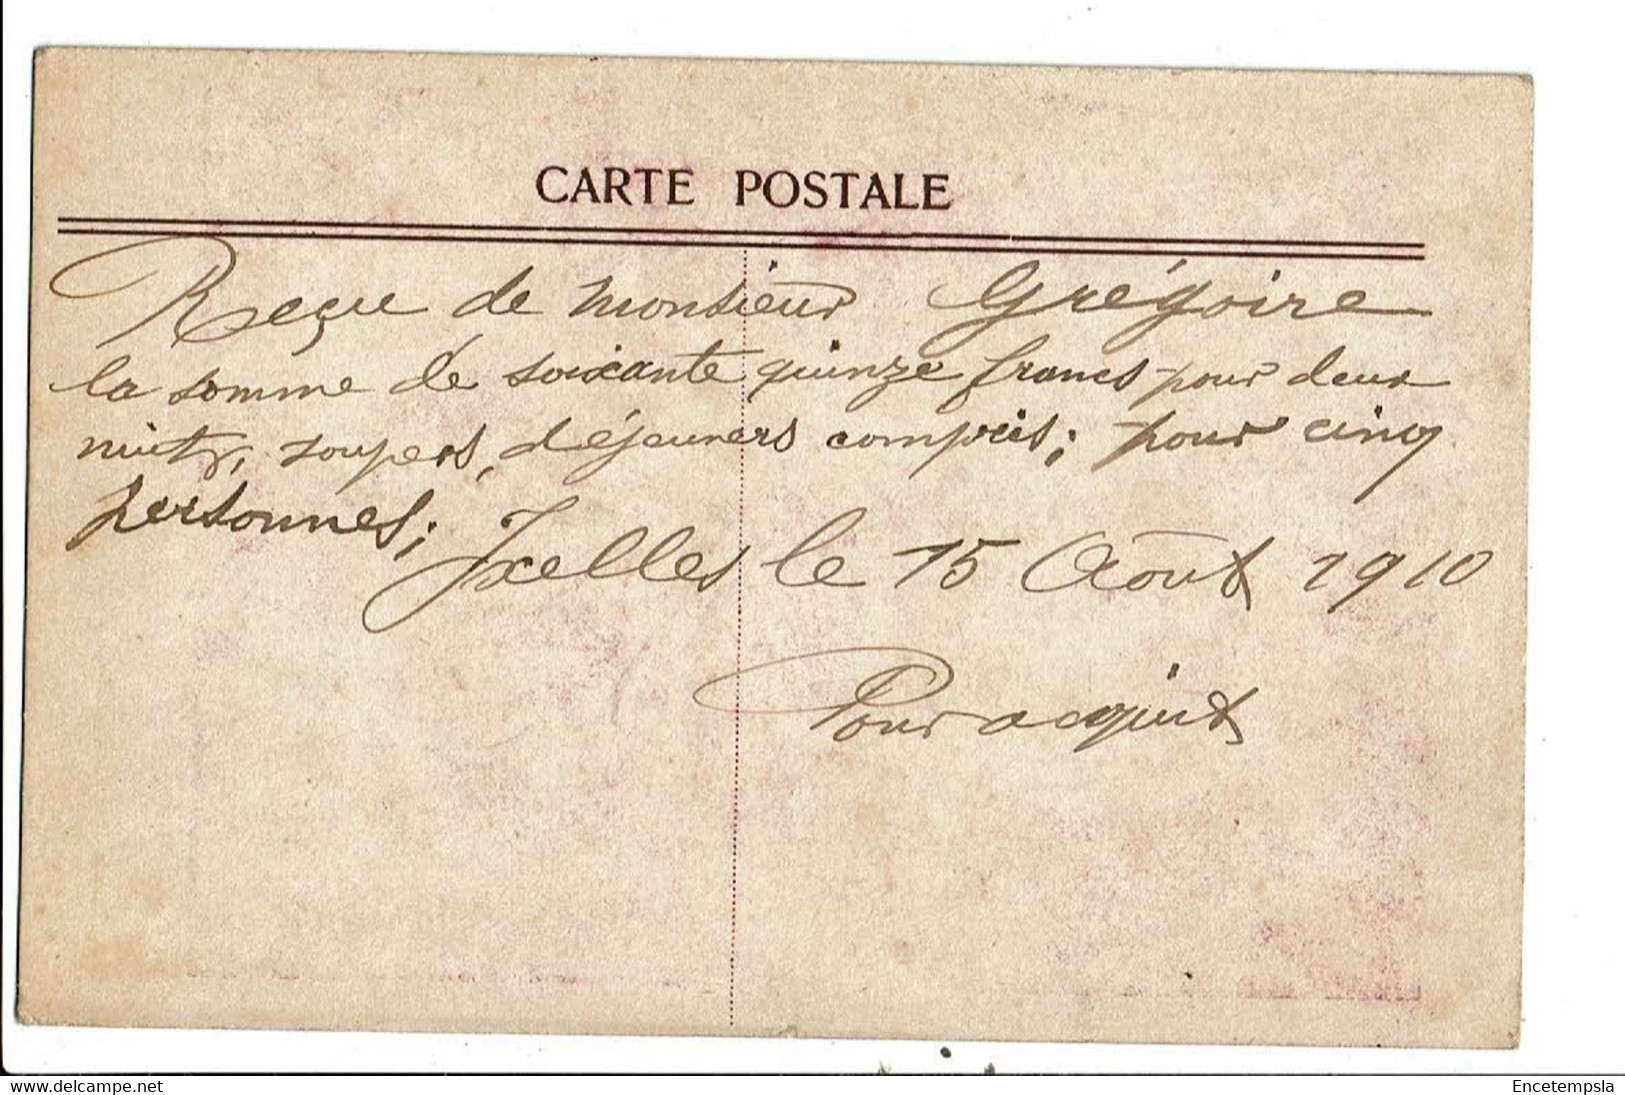 CARTE POSTALE
Reçu de Monsieur Grégoire
la somme de soixante quinze francs pour deux
nuits, soupers, déjeuners compris; pour cinq
personnes; Ixelles le 15 Août 1910
Pour acquit
www.delcampe.net
Encetempsla